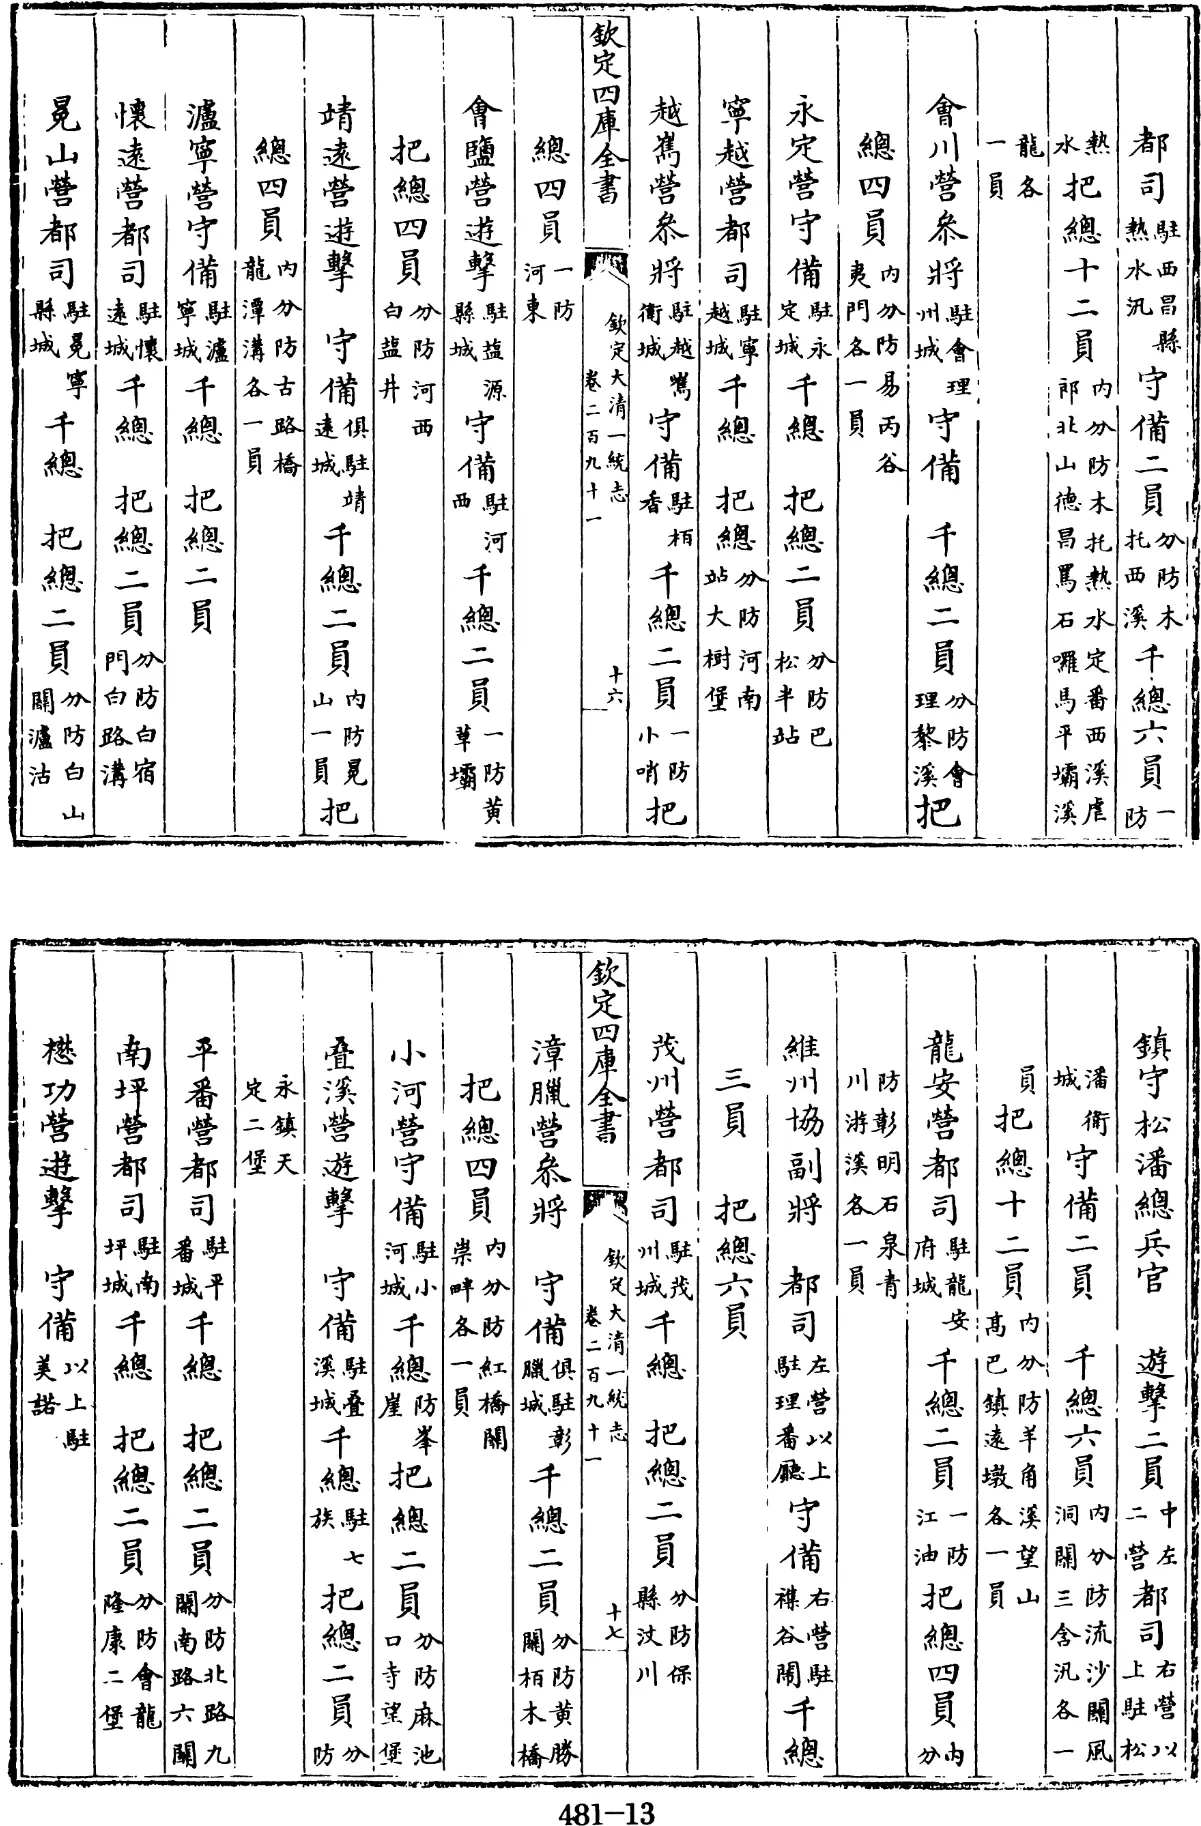 都司駐西昌縣熱水汛守備二員分防木托西溪千總六員一防
熱水把總十二員內分防木托熱水定番西溪虐郎北山德昌罵石囉馬平壩溪
龍各一員
會川營叅將駐會理州城守備 千總二員分防會理黎溪把
總四員內分防易丙谷夷門各一員
永定營守備駐永定城千總 把總二員分防巴松半站
寧越營都司駐寧越城千總 把總分防河南站大樹堡
越嶲營叅將駐越嶲衛城守備駐栢香千總二員一防小哨把
欽定四庫全書 欽定大清一統志 卷二百九十一 十六
總四員一防河東
會鹽營遊擊駐盐源縣城守備駐河西千總二員一防黄草壩
把總四員分防河西白盐井
靖遠營遊擊 守備俱駐靖遠城千總二員內防冕山一員把
總四員內分防古路橋龍潭溝各一員
瀘寧營守備駐瀘寧城千總 把總二員
懷遠營都司駐懷遠城千總 把總二員分防白宿門白路溝
冕山營都司駐冕寧縣城千總 把總二員分防白山關瀘沽
鎮守松潘總兵官 遊擊二員中左二營都司右營以上駐松
潘衛城守備二員 千總六員內分防流沙關風洞關三舍汛各一
員把總十二員內分防羊角溪望山髙屯鎮遠墩各一員
龍安營都司駐龍安府城千總二員一防江油把總四員內分
防彰明石泉青川游溪各一員
維州協副將 都司左營以上駐理番廳守備右營駐襍谷閙千總
三員 把總六員
茂州營都司駐茂州城千總 把總二員分防保縣汶川
欽定四庫全書 欽定大清一統志 卷二百九十一 十七
漳臘營叅將 守備俱駐彰臘城千總二員分防黄勝關栢木橋
把總四員內分防紅橋關崇畔各一員
小河營守備駐小河城千總防峯崖把總二員分防麻池口寺望堡
叠溪營遊擊 守備駐叠溪城千總駐七族把總二員分防
永鎮天定二堡
平番營都司駐平番城千總 把總二員分防北路九關南路六關
南坪營都司駐南坪城千總 把總二員分防會龍隆康二堡
懋功營遊擊 守備以上駐美諾
481-13